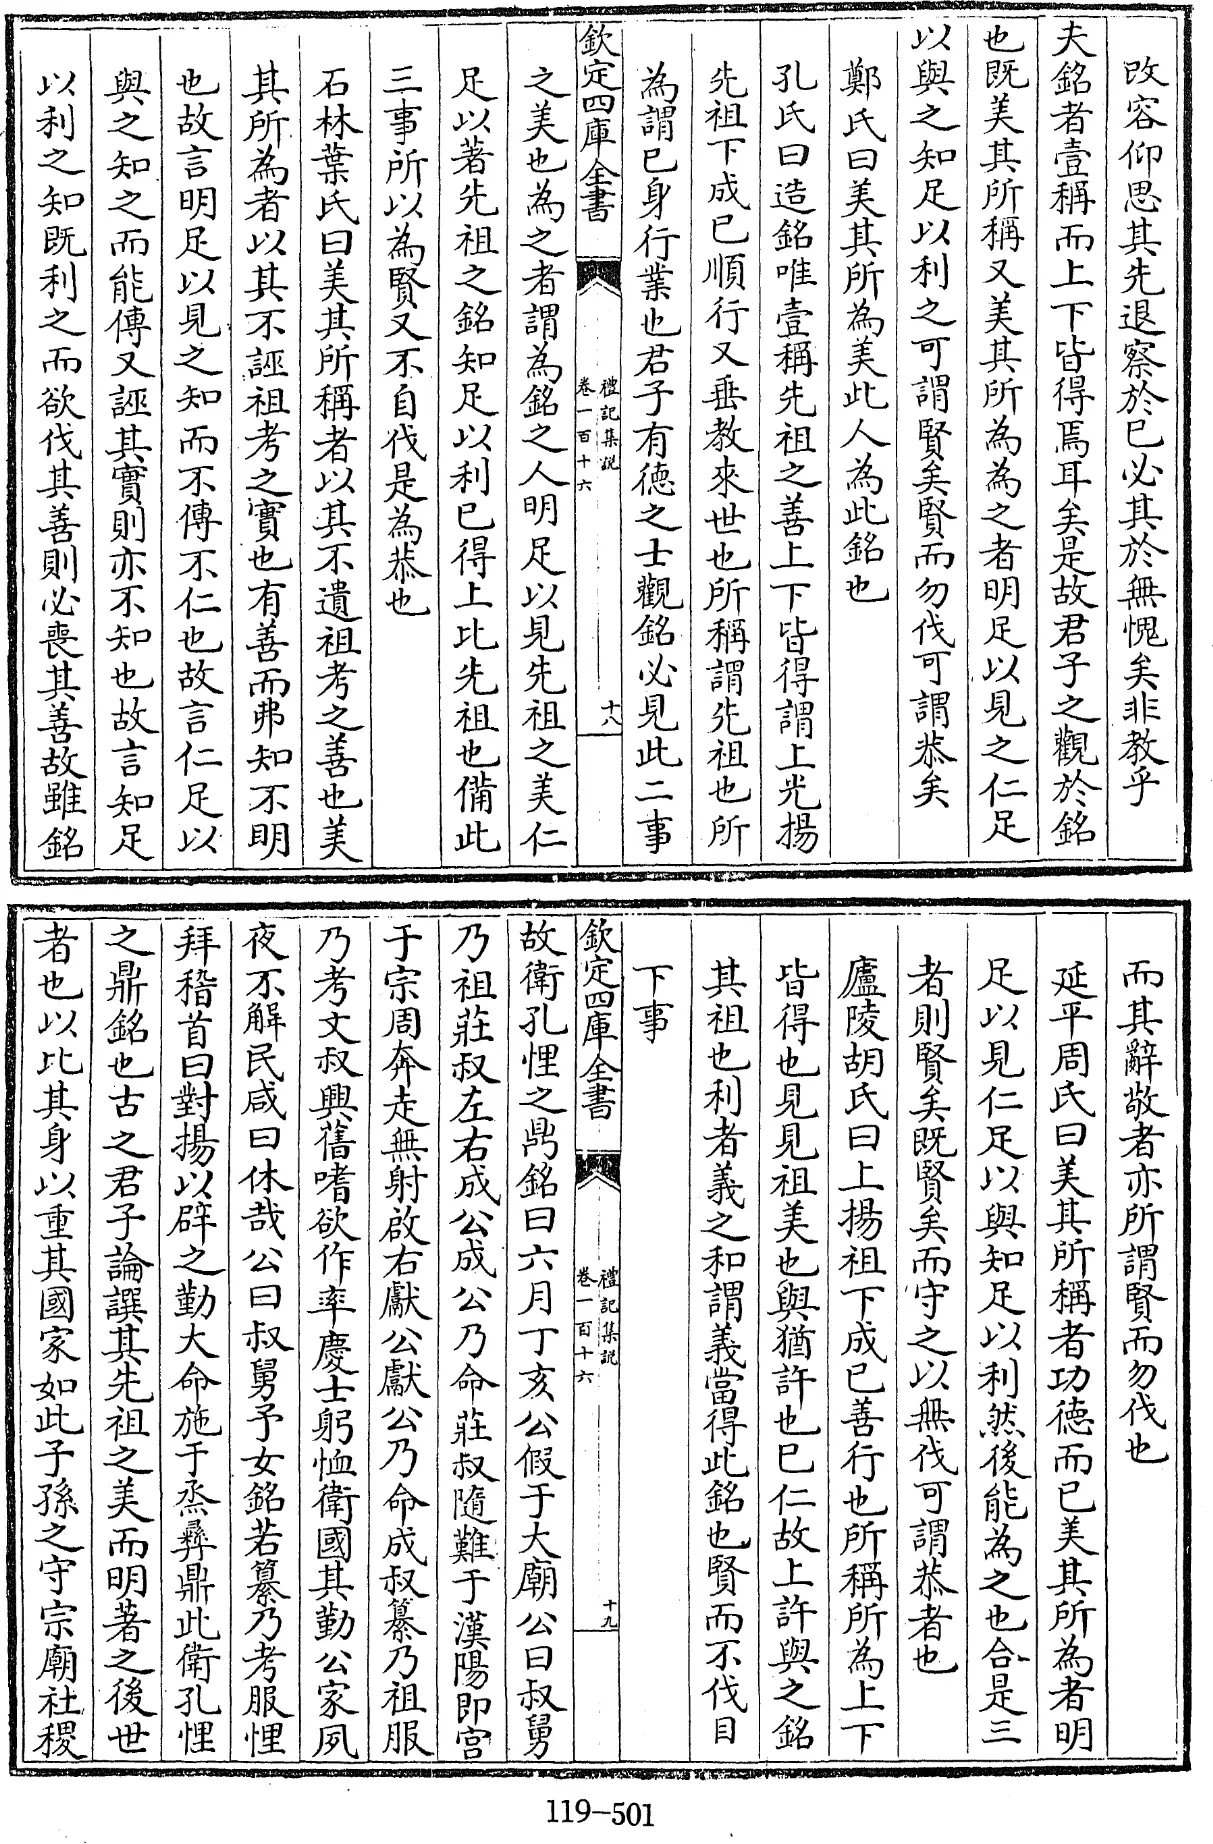 改容仰思其先退察於已必其於無愧矣非教乎
夫銘者壹稱而上下皆得焉耳矣是故君子之觀於銘
也既美其所稱又美其所為為之者明足以見之仁足
以與之知足以利之可謂賢矣賢而勿伐可謂恭矣
鄭氏曰美其所為美此人為此銘也
孔氏曰造銘唯壹稱先祖之善上下皆得謂上光揚
先祖下成已順行又垂教來世也所稱謂先祖也所
為謂已身行業也君子有德之士觀銘必見此二事
欽定四庫全書
禮記集說
卷一百十六
十八
之美也為之者謂為銘之人明足以見先祖之美仁
足以著先祖之銘知足以利已得上比先祖也備此
三事所以為賢又不自伐是為恭也
石林葉氏曰美其所稱者以其不遺祖考之善也美
其所為者以其不誣祖考之實也有善而弗知不明
也故言明足以見之知而不傳不仁也故言仁足以
與之知之而能傳又誣其實則亦不知也故言知足
以利之知既利之而欲伐其善則必喪其善故雖銘
而其辭敬者亦所謂賢而勿伐也
延平周氏曰美其所稱者功德而已美其所為者明
足以見仁足以與知足以利然後能為之也合是三
者則賢矣既賢矣而守之以無伐可謂恭者也
廬陵胡氏曰上揚祖下成已善行也所稱所為上下
皆得也見見祖美也與猶許也已仁故上許與之銘
其祖也利者義之和謂義當得此銘也賢而不伐目
下事
欽定四庫全書
禮記集說
卷一百十六
十九
故衛孔悝之鼎銘曰六月丁亥公假于大廟公曰叔舅
乃祖莊叔左右成公成公乃命莊叔隨難于漢陽即宮
于宗周奔走無射啟右獻公獻公乃命成叔纂乃祖服
乃考文叔興舊嗜欲作率慶士躬恤衛國其勤公家夙
夜不解民咸曰休哉公曰叔舅予女銘若纂乃考服悝
拜稽首曰對揚以辟之勤大命施于烝彝鼎此衛孔悝
之鼎銘也古之君子論譔其先祖之美而明著之後世
者也以比其身以重其國家如此子孫之守宗廟社稷
119-501